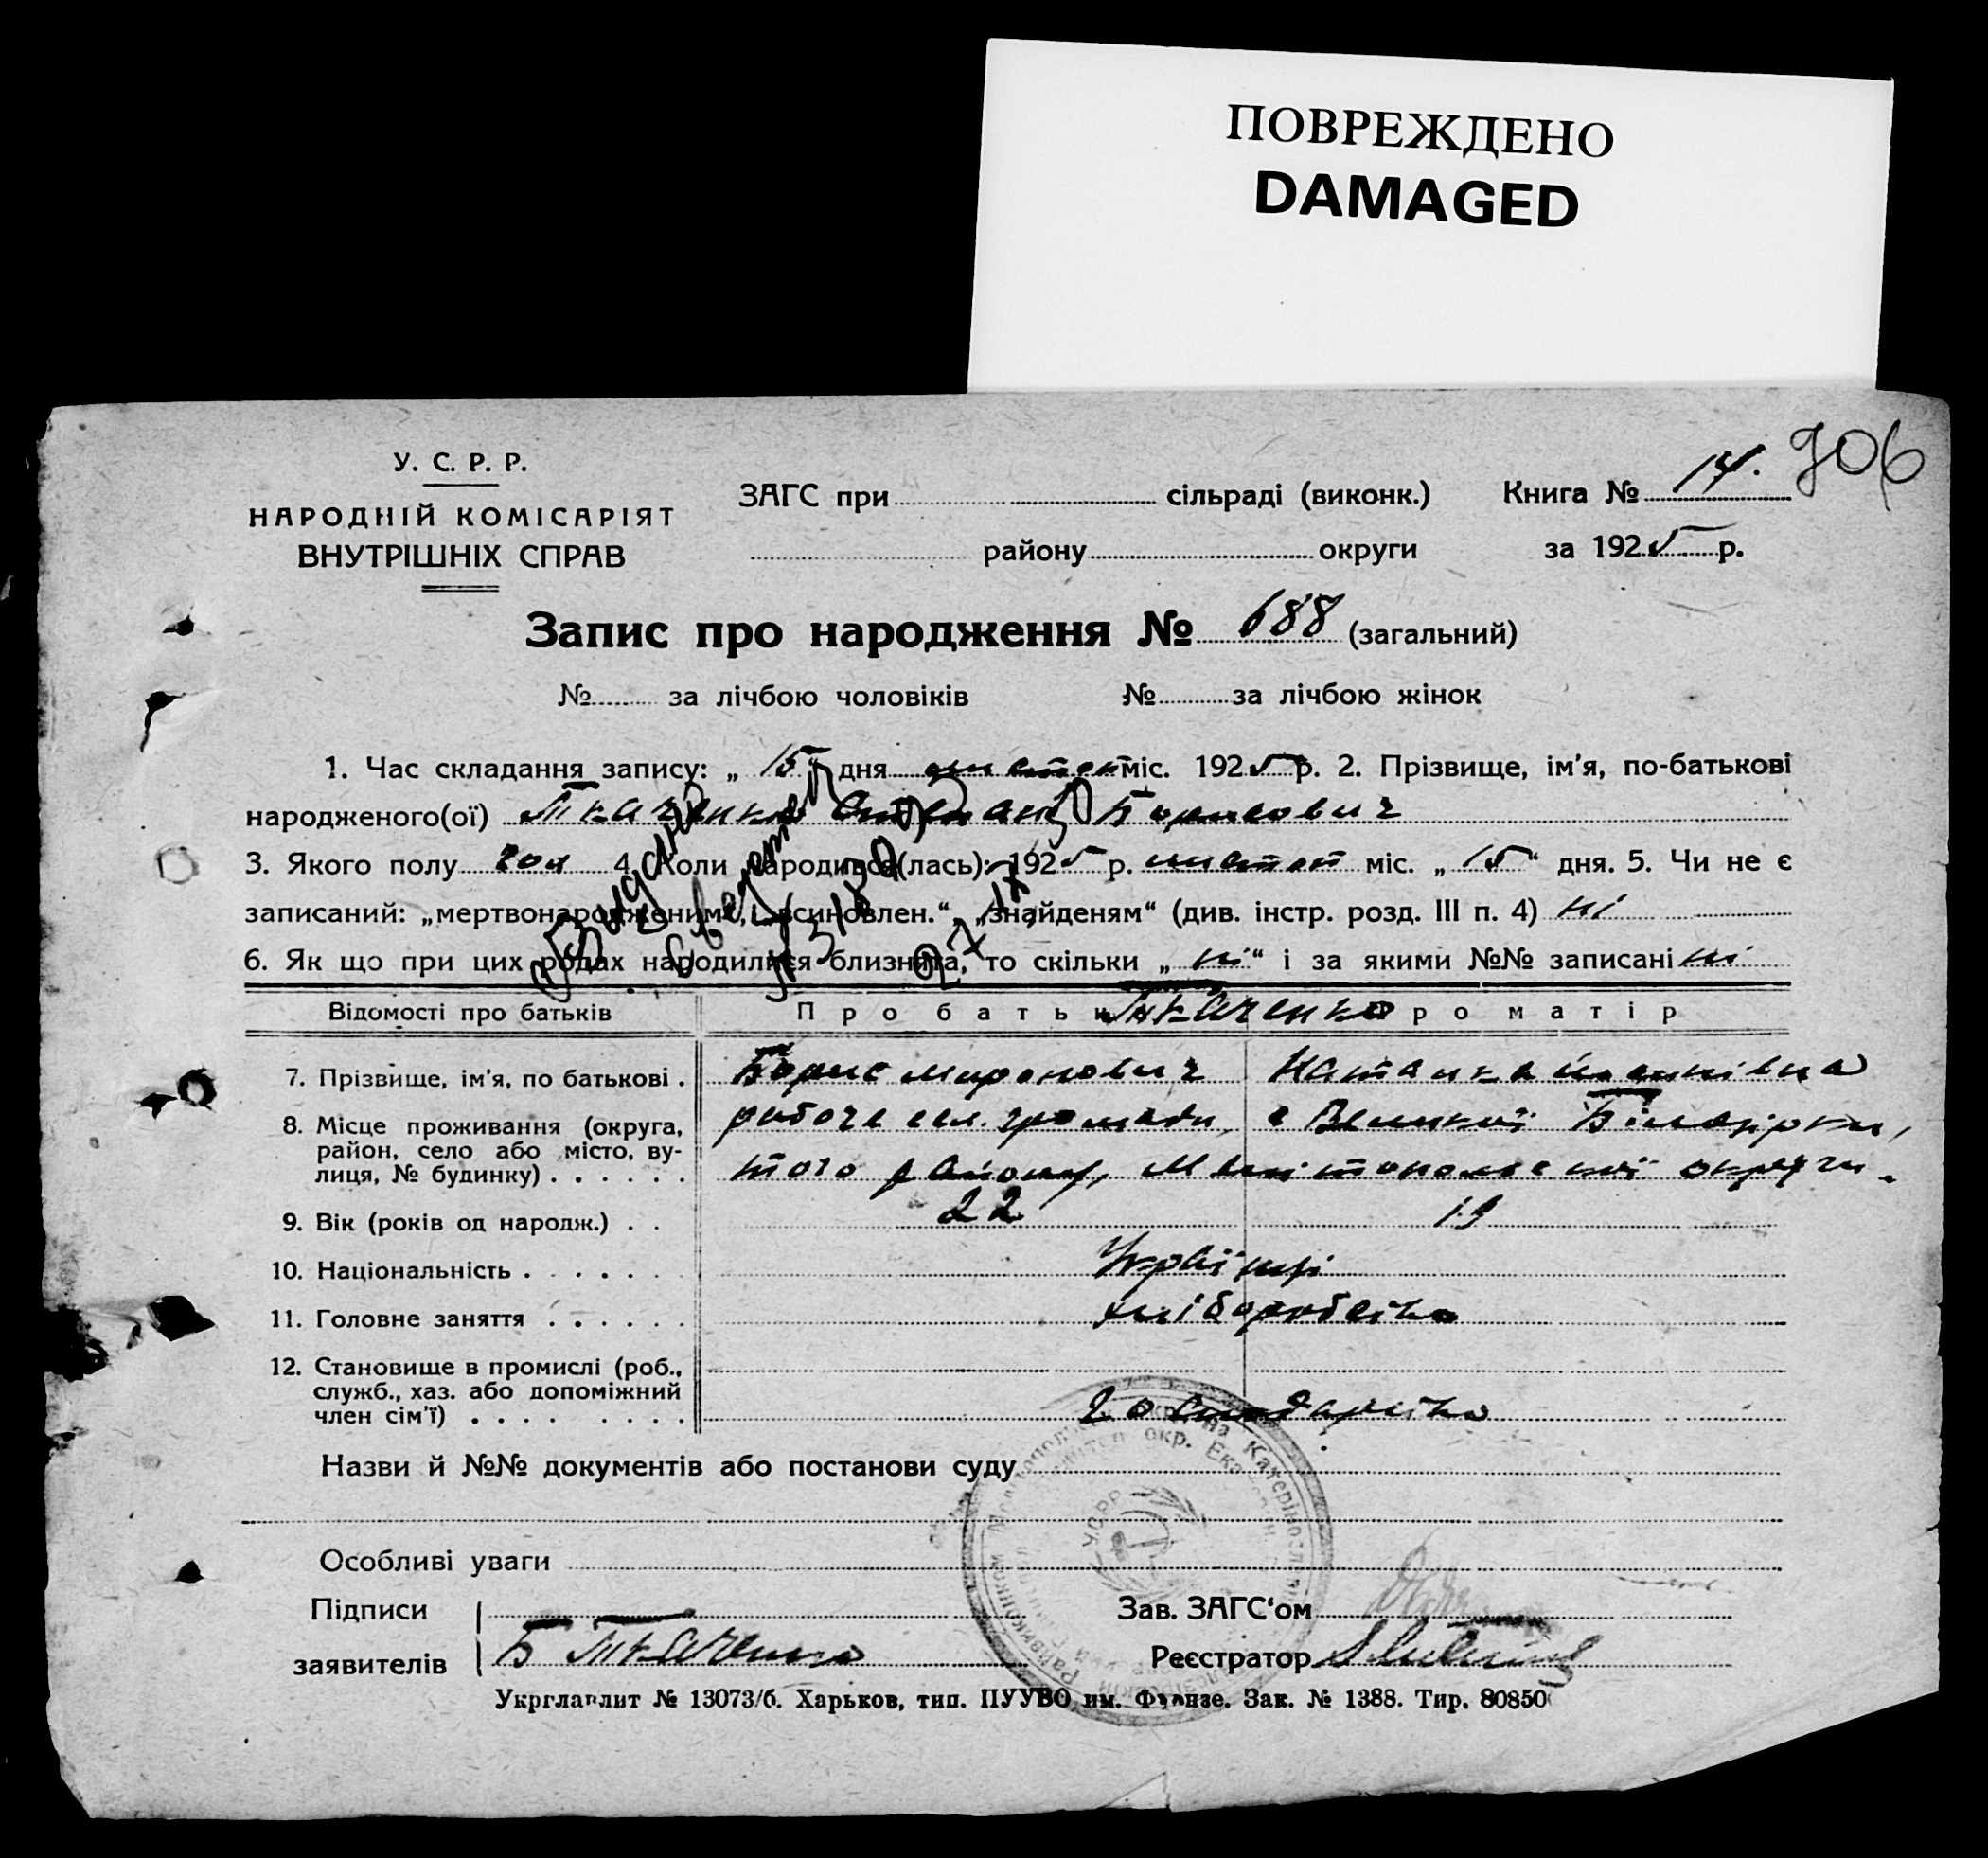 ПОВРЕЖДЕНО
DAMAGED
706
У. С. Р. Р.
НАРОДНІЙ КОМІСАРІЯТ
ВНУТРІШНІХ СПРАВ
ЗАГС при сільраді (виконк.)
району округи
Книга № 14.
за 1925 р.
Запис про народження № 688 (загальний)
№ за лічбою чоловіків № за лічбою жінок
1. Час складання запису: „ 15 “ дня міс. 1925 р. 2. Прізвище, ім'я, по-батькові
народженого(ої) Ткаченко Борисович
3. Якого полу чол 4. Коли народився(лась): 1925 р. міс. „ 15 “ дня. 5. Чи не є
записаний: „мертвонародженим“, „всиновлен.“, „знайденям“ (див. інстр. розд. III п. 4) ні
6. Як що при цих родах народилися близнята, то скільки „ ні “ і за якими №№ записані ні
Відомості про батьків Про батька Ткаченко Про матір
7. Прізвище, ім'я, по батькові . Борис Миронович Наталка
8. Місце проживання (округа, район, село або місто, вулиця, № будинку) . . . . . . громади, с Великої Білозірки,
того району, Мелітопольської округи.
9. Вік (років од народж.) . . 22 19
10. Національність . . . . . . . Українці
11. Головне заняття . . . . . . хліборобство
12. Становище в промислі (роб.,
служб., хаз. або допоміжний
член сім'ї) . . . . . . . .
Назви й №№ документів або постанови суду
Особливі уваги
Підписи
заявителів Б Ткаченко
Зав. ЗАГС‘ом
Реєстратор
Укрглавлит № 13073/б. Харьков, тип. ПУУВО им. Фрунзе. Зак. № 1388. Тир. 80850